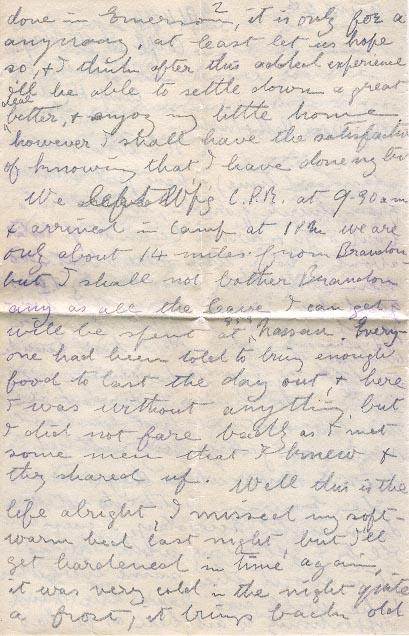 2
done in Emerson, it is only for a
anyway, at least let us hope
so, & I think after this added experience
I'll be able to settle down a great
deal
better, & enjoy my little home,
however I shall have the satisfaction
of knowing that I have done my bit
We left Wpg C.P.R. at 9-30 am
& arrived in Camp at 1 P.M. we are
only about 14 miles from Brandon
but I shall not bother Brandon
any as all the leave I can get
will be spent at "393 Nassau. Every-
one had been told to bring enough
food to last the day out, & here
I was without anything, but
I did not fare badly as I met
some men that I knew &
they shared up. Well this is the
life alright, I missed my soft-
warm bed last night, but I'll
get hardened in time again,
it was very cold in the night quite
a frost, it brings back old